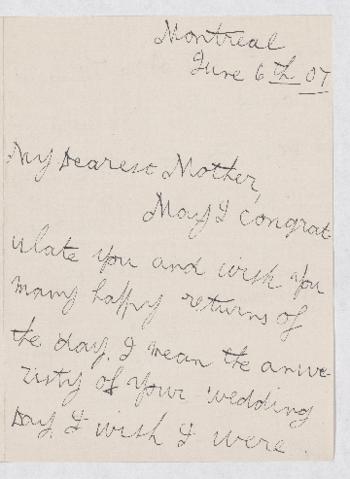 Montreal
June 6th 07
My Dearest Mother,
May I congrat
ulate you and wish you
many happy returns of
the day, I mean the anive
risity of your wedding
Day, I wish I were